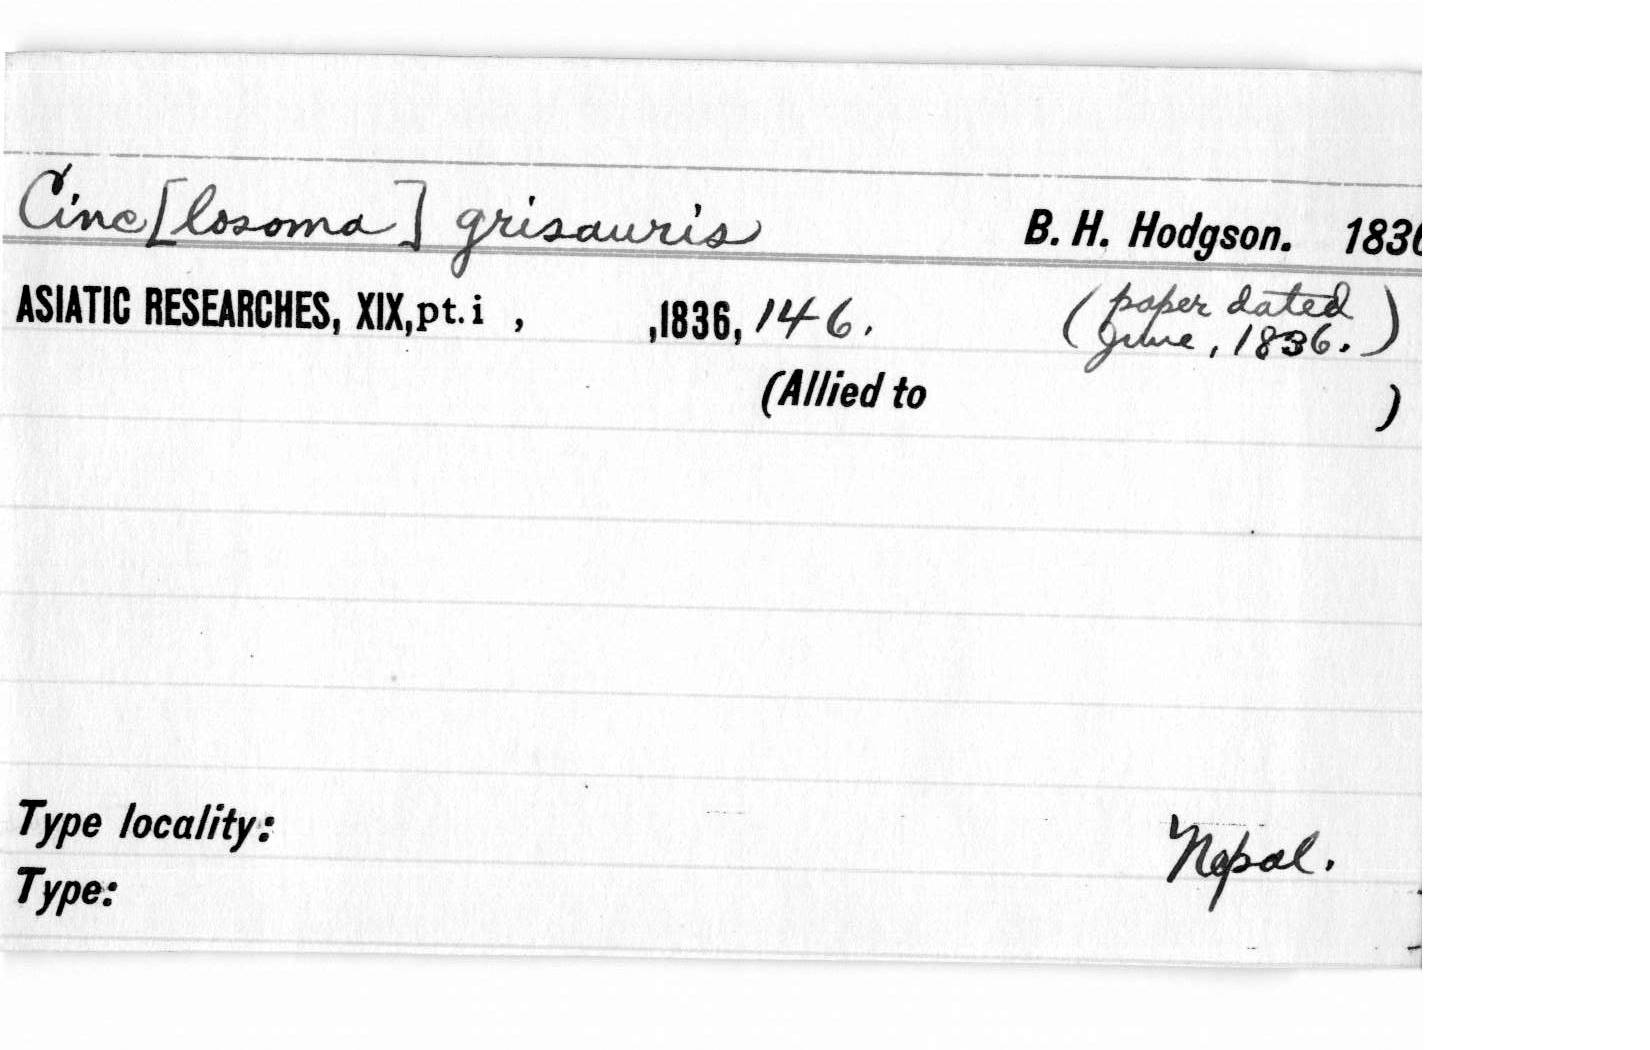 Cinc[losoma] grisauris B. H. Hodgson. 1836
ASIATIC RESEARCHES, XIX, pt. i , ,1836, 146. (paper dated
June, 1836.)
(Allied to )
Type locality: Nepal.
Type: